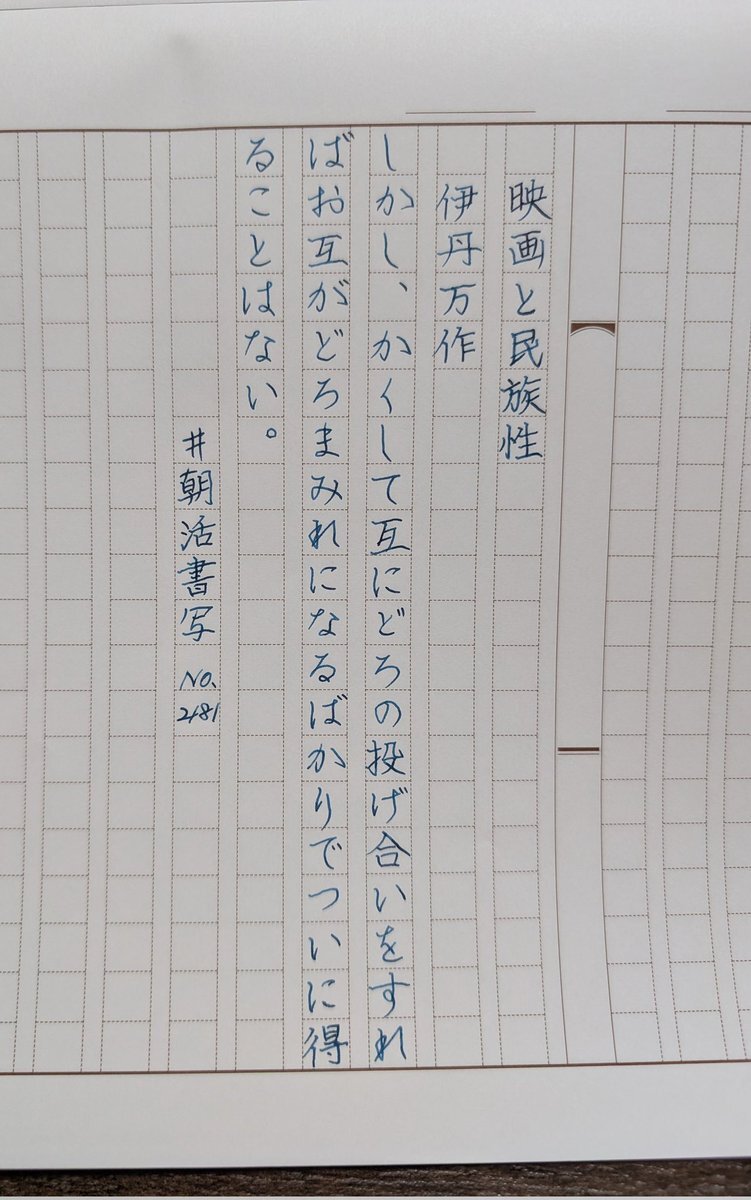 映画と民族性
伊丹万作
しかし、かくして互にどろの投げ合いをすれ
ばお互がどろまみれになるばかりでついに得
ることはない。
#朝活書写 No.
2181